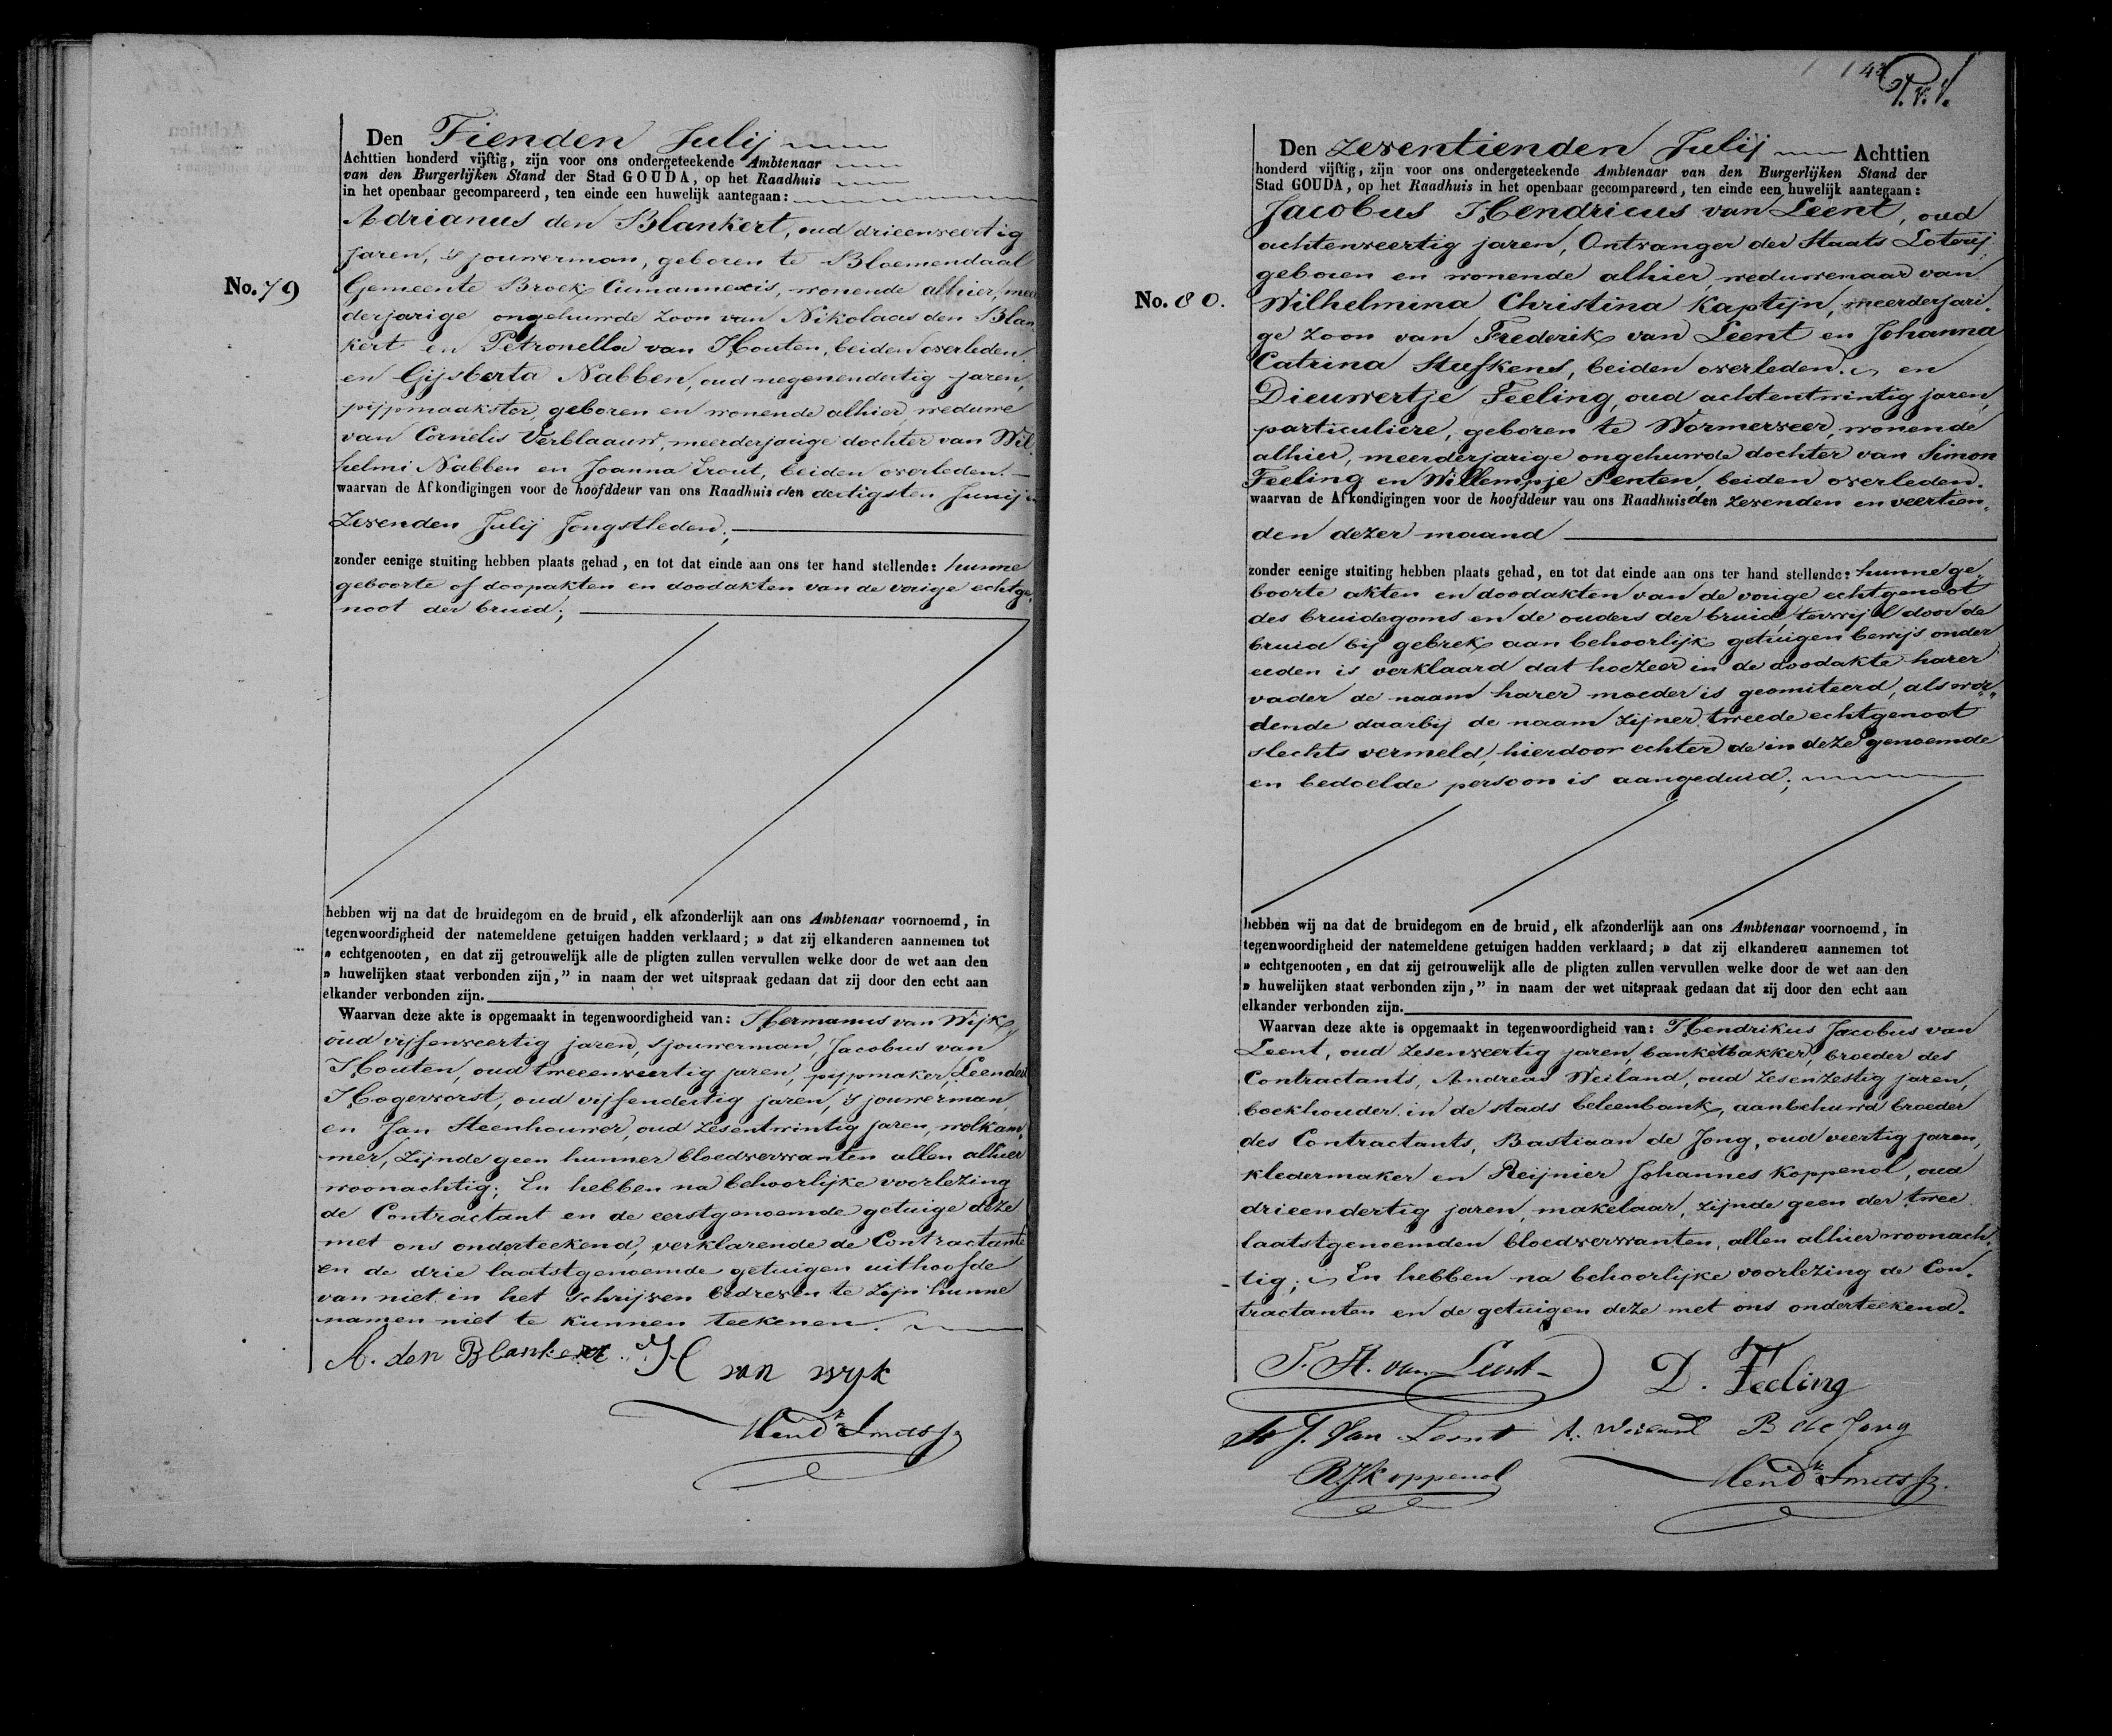 Den Tienden Julij
Achttien honderd vijftig, zijn voor ons ondergeteekende Ambtenaar
van den Burgerlijken Stand der Stad GOUDA, op het Raadhuis
in het openbaar gecompareerd, ten einde een huwelijk aantegaan:
Adrianus den Blankert, oud drieenveertig
Jaren, sjouwerman, geboren te Bloemendaal
No. 79
Gemeente Broek Cumannexis, wonende alhier, meer
derjarige ongehuwde zoon van Nikolaas den Blan
kert en Petronella van Houten, beiden overleden
en Gijsberta Nabben, oud negenendertig jaren,
pijpmaakster, geboren en wonende alhier, weduwe
van Cornelis Verblaauw, meerderjarige dochter van Wil
helmi Nabben en Joanna Trout, beiden overleden.
waarvan de Afkondigingen voor de hoofddeur van ons Raadhuis den dertigsten Junij
Zevenden Julij Jongstleden;
zonder eenige stuiting hebben plaats gehad, en tot dat einde aan ons ter hand stellende: hunne
geboorte of doopakten en doodakten van de vorige echtge
noot der bruid;
hebben wij na dat de bruidegom en de bruid, elk afzonderlijk aan ons Ambtenaar voornoemd, in
tegenwoordigheid der natemeldene getuigen hadden verklaard; » dat zij elkanderen aannemen tot
» echtgenooten, en dat zij getrouwelijk alle de pligten zullen vervullen welke door de wet aan den
» huwelijken staat verbonden zijn,” in naam der wet uitspraak gedaan dat zij door den echt aan
elkander verbonden zijn.
Waarvan deze akte is opgemaakt in tegenwoordigheid van: Hermanus van Wijk
oud vijfenveertig jaren, sjouwerman, Jacobus van
Houten, oud tweeenveertig jaren, pijpmaker, Leendert
Hogervorst, oud vijfendertig jaren, sjouwerman
en Jan Steenhouwer, oud zesentwintig jaren, wolkam
mer, zijnde geen hunner bloedverwanten allen alhier
woonachtig; En hebben na behoorlijke voorlezing
de Contractant en de eerstgenoemde getuige deze
met ons onderteekend, verklarende de Contractante
en de drie laatstgenoemde getuigen uithoofde
van niet in het schrijven bedreven te zijn hunne
namen niet te kunnen teekenen.
A. den Blankert H van wyk
Hendk Smits Jz
43
Den zeventienden Julij Achttien
honderd vijftig, zijn voor ons ondergeteekende Ambtenaar van den Burgerlijken Stand der
Stad GOUDA, op het Raadhuis in het openbaar gecompareerd, ten einde een huwelijk aantegaan:
Jacobus Hendricus van Leent, oud
achtenveertig jaren, Ontvanger der Staats Loterij
geboren en wonende alhier, weduwenaar van
No. 80.
Wilhelmina Christina Kaptijn, meerderjari
ge zoon van Frederik van Leent en Johanna
Catrina Stufkens, beiden overleden. en
Dieuwertje Feeling, oud achtentwintig jaren,
particuliere, geboren te Wormerveer, wonende
alhier, meerderjarige ongehuwde dochter van Simon
Feeling en Willempje Penten, beiden overleden.
waarvan de Afkondigingen voor de hoofddeur van ons Raadhuis den zevenden en veertien
den dezer maand
zonder eenige stuiting hebben plaats gehad, en tot dat einde aan ons ter hand stellende: hunne ge
boorte akten en doodakten van de vorige echtgenoot
des bruidegoms en de ouders der bruid, terwijl door de
bruid bij gebrek aan behoorlijk getuigen bewijs onder
eeden is verklaard dat hoezeer in de doodakte harer
vader de naam harer moeder is geomiteerd, als wor
dende daarbij de naam zijner tweede echtgenoot
slechts vermeld, hierdoor echter de in deze genoemde
en bedoelde persoon is aangeduid;
hebben wij na dat de bruidegom en de bruid, elk afzonderlijk aan ons Ambtenaar voornoemd, in
tegenwoordigheid der natemeldene getuigen hadden verklaard; » dat zij elkanderen aannemen tot
» echtgenooten, en dat zij getrouwelijk alle de pligten zullen vervullen welke door de wet aan den
» huwelijken staat verbonden zijn,” in naam der wet uitspraak gedaan dat zij door den echt aan
elkander verbonden zijn.
Waarvan deze akte is opgemaakt in tegenwoordigheid van: Hendrikus Jacobus van
Leent, oud zesenveertig jaren, banketbakker, broeder des
Contractants, Andreas Weiland, oud zesenzestig jaren,
boekhouder in de stads beleenbank, aanbehuwd broeder
des Contractants, Bastiaan de Jong, oud veertig jaren,
kledermaker en Reijnier Johannes Koppenol, oud
drieendertig jaren, makelaar, zijnde geen der twee
laatstgenoemden bloedverwanten, allen alhier woonach
tig; En hebben na behoorlijke voorlezing de Con
tractanten en de getuigen deze met ons onderteekend.
J. H. van Leent D. Feeling
H J. Van Leent A. Weiland B de Jong
R.J. Koppenol Hendk Smits Jz.